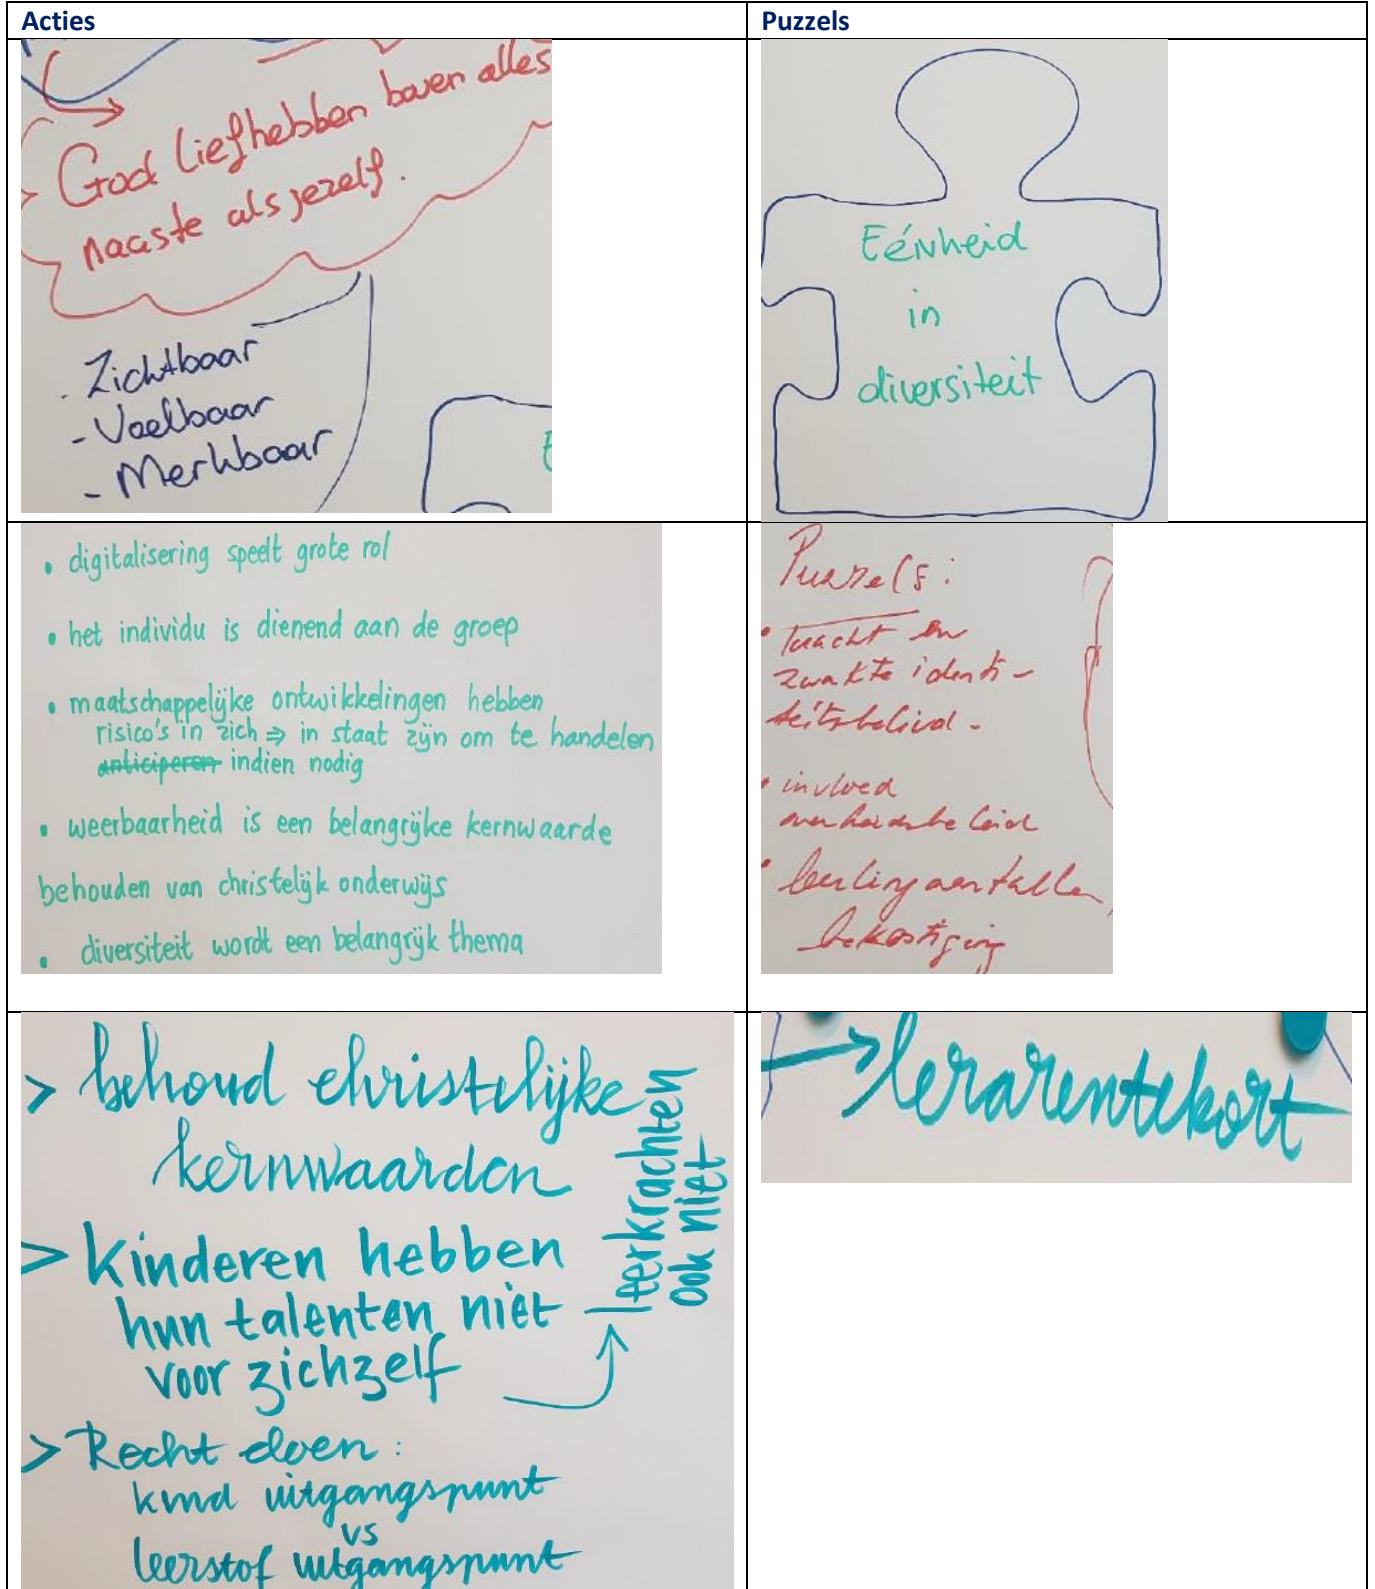 Acties
Puzzels
God liefhebben boven alles
naaste als jezelf.
- Zichtbaar
- Voelbaar
- Merkbaar
E
Eénheid
in
diversiteit
• digitalisering speelt grote rol
• het individu is dienend aan de groep
• maatschappelijke ontwikkelingen hebben
risico's in zich ⇒ in staat zijn om te handelen
anticiperen indien nodig
• weerbaarheid is een belangrijke kernwaarde
behouden van christelijk onderwijs
• diversiteit wordt een belangrijk thema
Puzzels:
• kracht en
zwakte identi-
teitsbeleid -
• invloed
overheidsbeleid
• leerlingaantallen,
bekostiging
> behoud christelijke
kernwaarden
> kinderen hebben
hun talenten niet
voor zichzelf
leerkrachten
ook niet
> Recht doen:
kind uitgangspunt
vs
leerstof uitgangspunt
→ lerarentekort